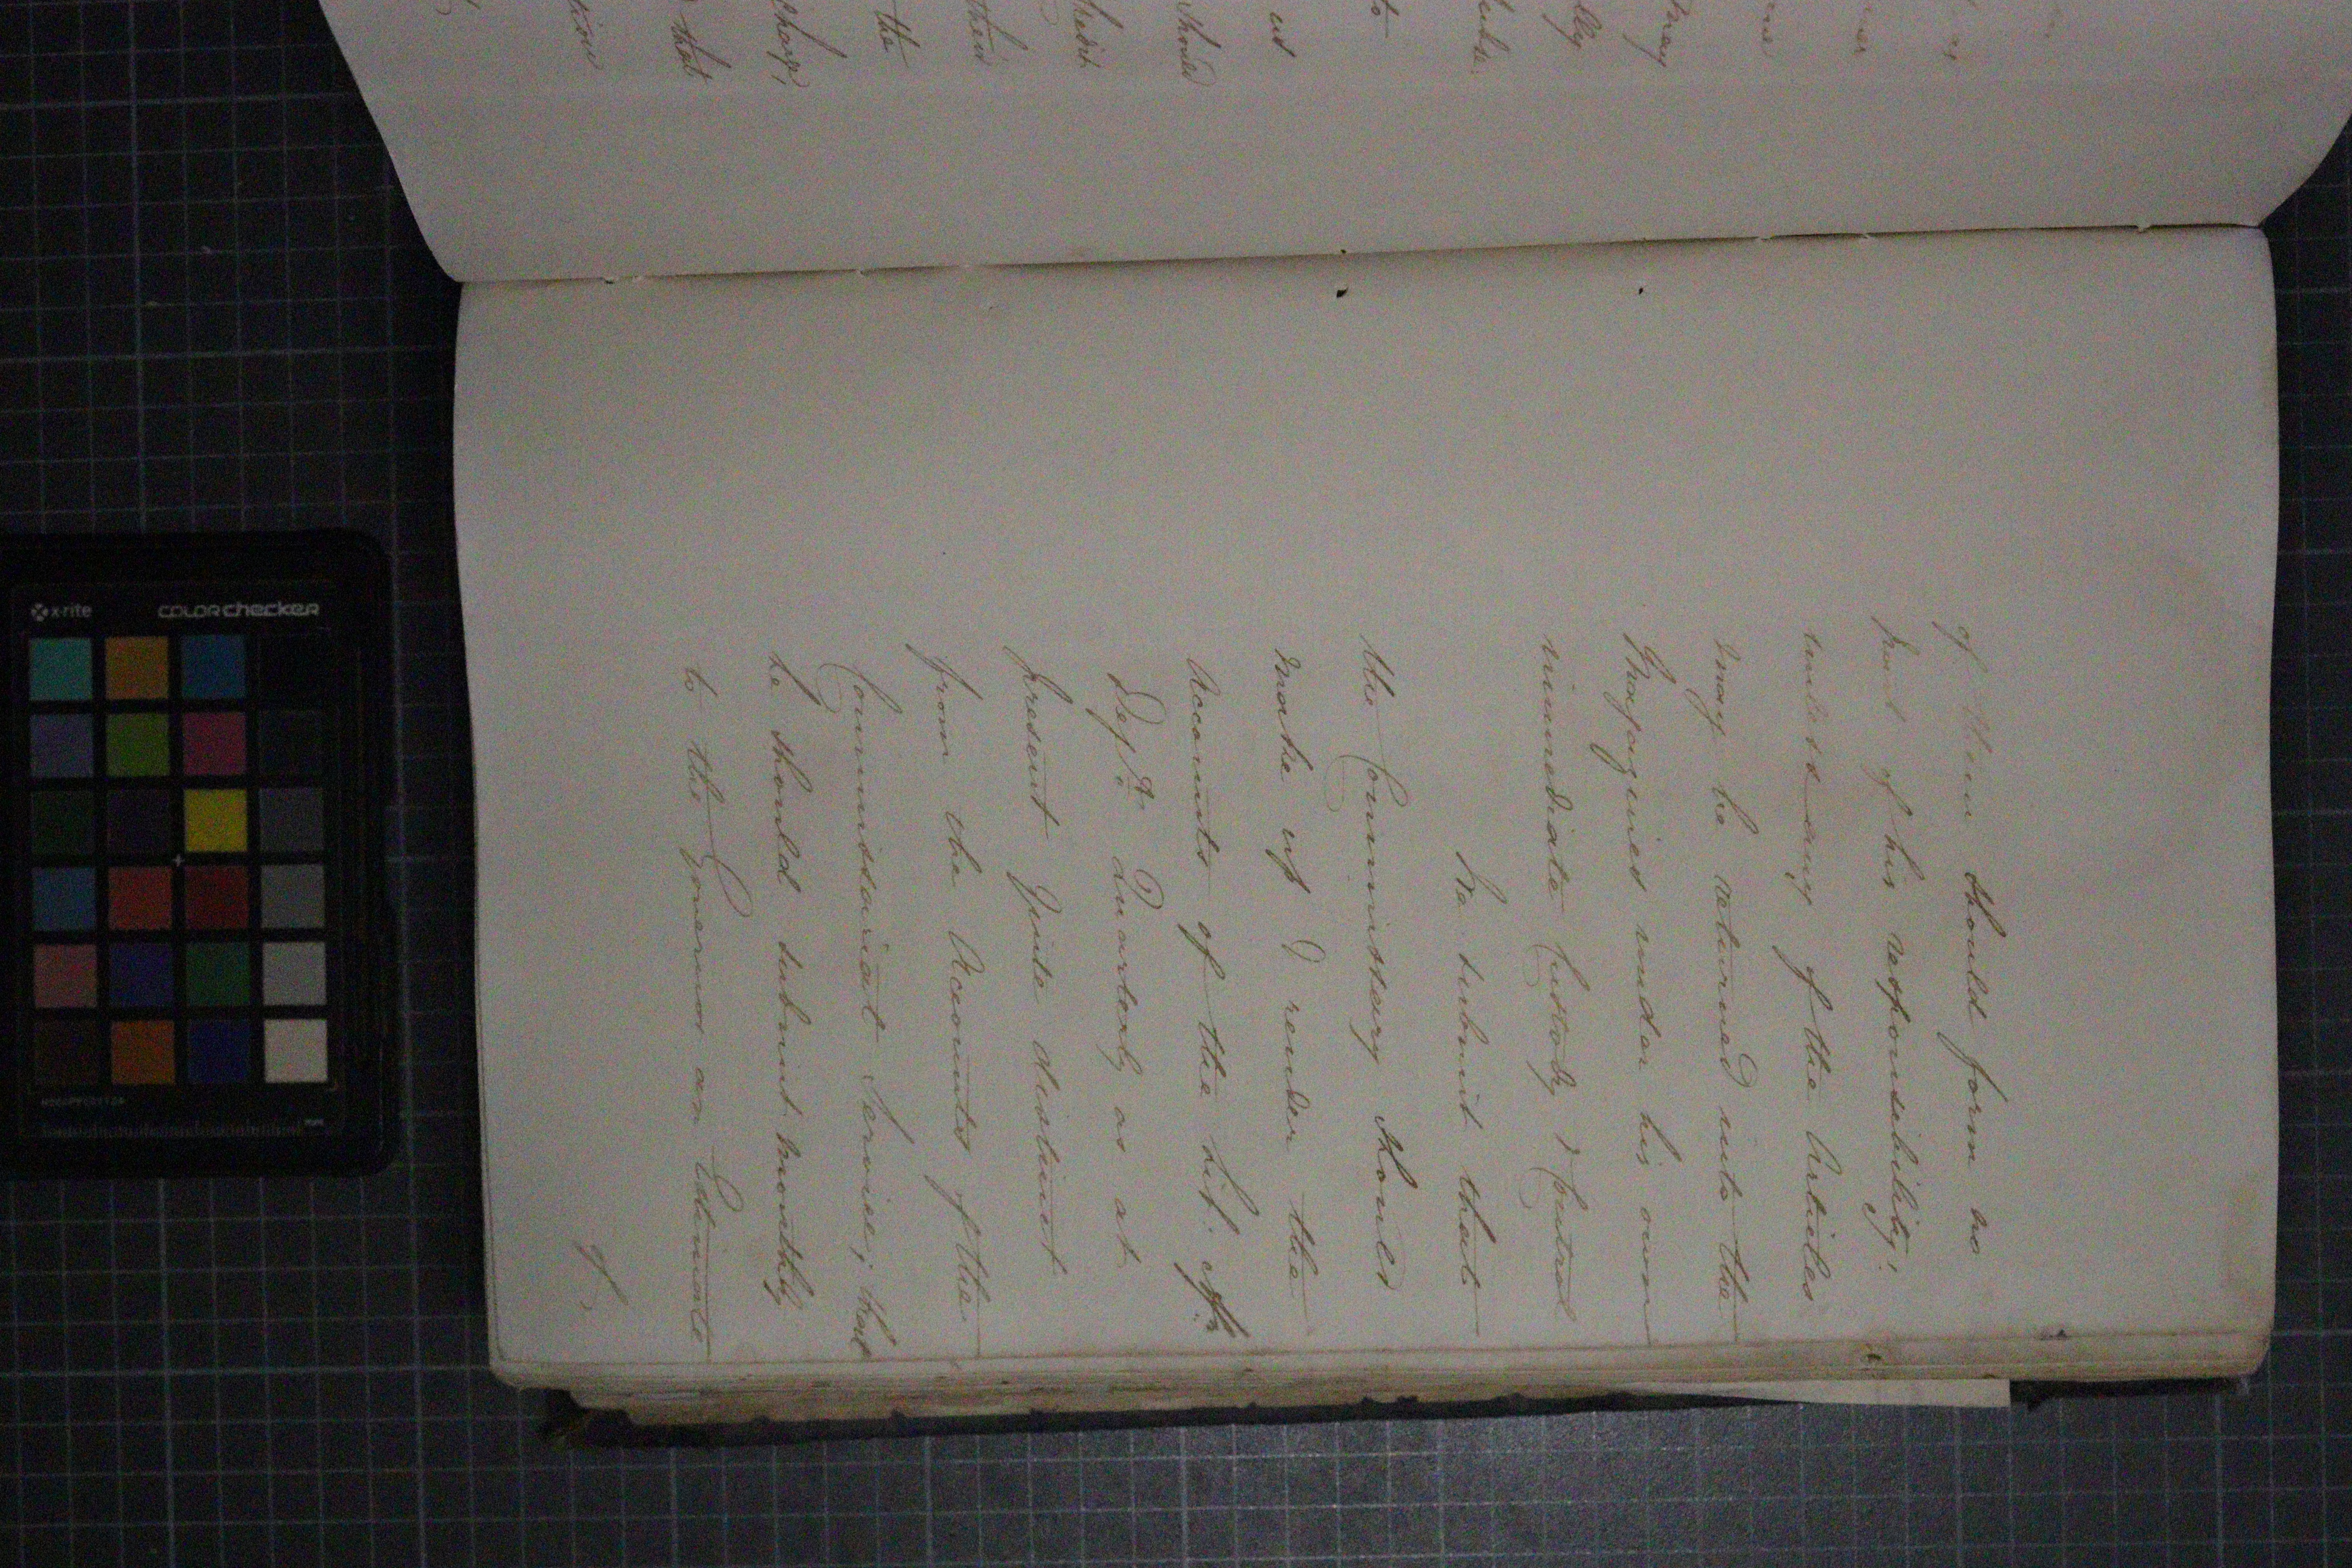 of them should form no
part of his responsibility;
unless any of the Articles
may be returned into the
Magazines under his own
immediate Custody & Control
We submit that
the Commissary should
make up & render the
Accounts of the Lib: Affn
Dept. Quarterly as at
present quite distinct
from the Accounts of the
Commissariat Service; that
he should submit monthly
to the Governor an Estimate
of
should
their
the
that
x-rite
colorchecker